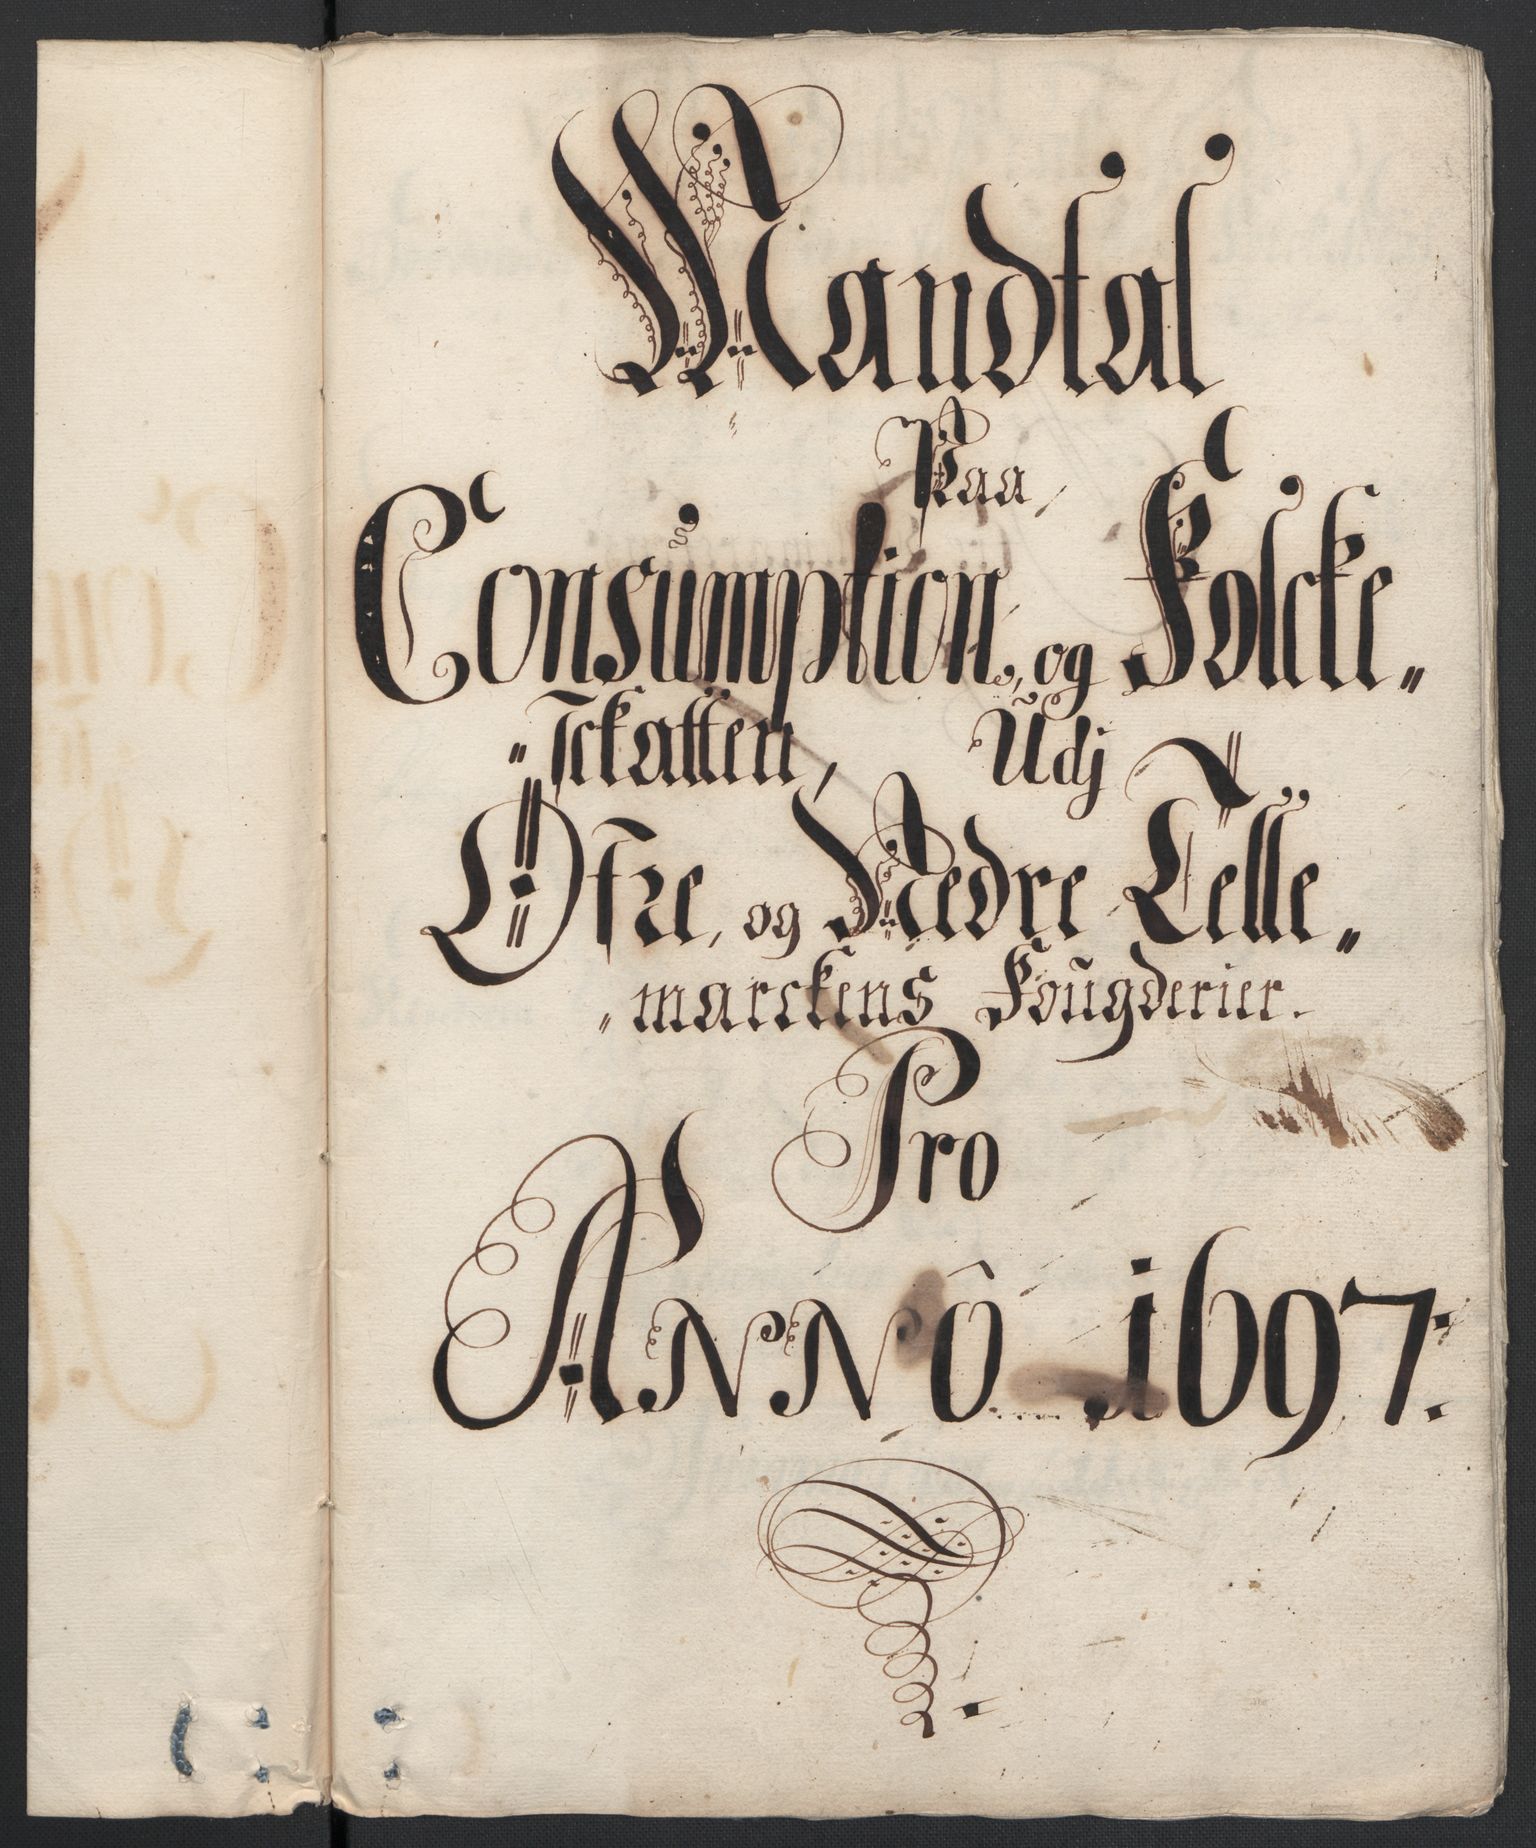 Mandtal
Paa,
Consumption, og Folcke„
„Skatten, Udj
Øfre, og Nedre Telle„
„marckens Fougderier.
Pro
Annô 1697: